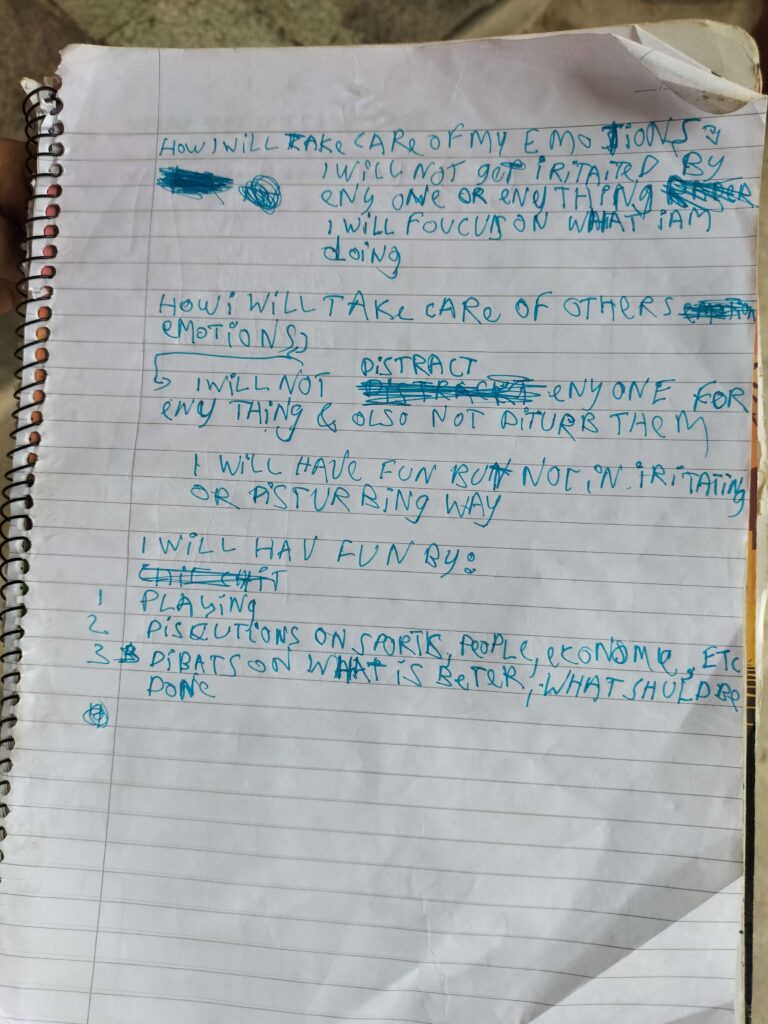 HOW I WILL TAKE CARE OF MY EMOTIONS
I WILL NOT GET IRITAITED BY
ENY ONE OR ENY THING
I WILL FOUCUS ON WHAT IAM
doING
HOW i WILL TAKE CARE OF OTHERS
eMOTIONS
I WILL NOT DISTRACT ENY ONE FOR
ENY THING & OLSO NOT DITURB THEM
I WILL HAVE FUN BUT NOT IN IRITATING
OR DISTURBING WAY
I WILL HAV FUN BY:
1 PLAYING
2 DISCUTIONS ON SPORTS, PEOPLE, EKONOME, ETC
3 DIBATS ON WHAT IS BETER, WHAT SHULD BE
DONE